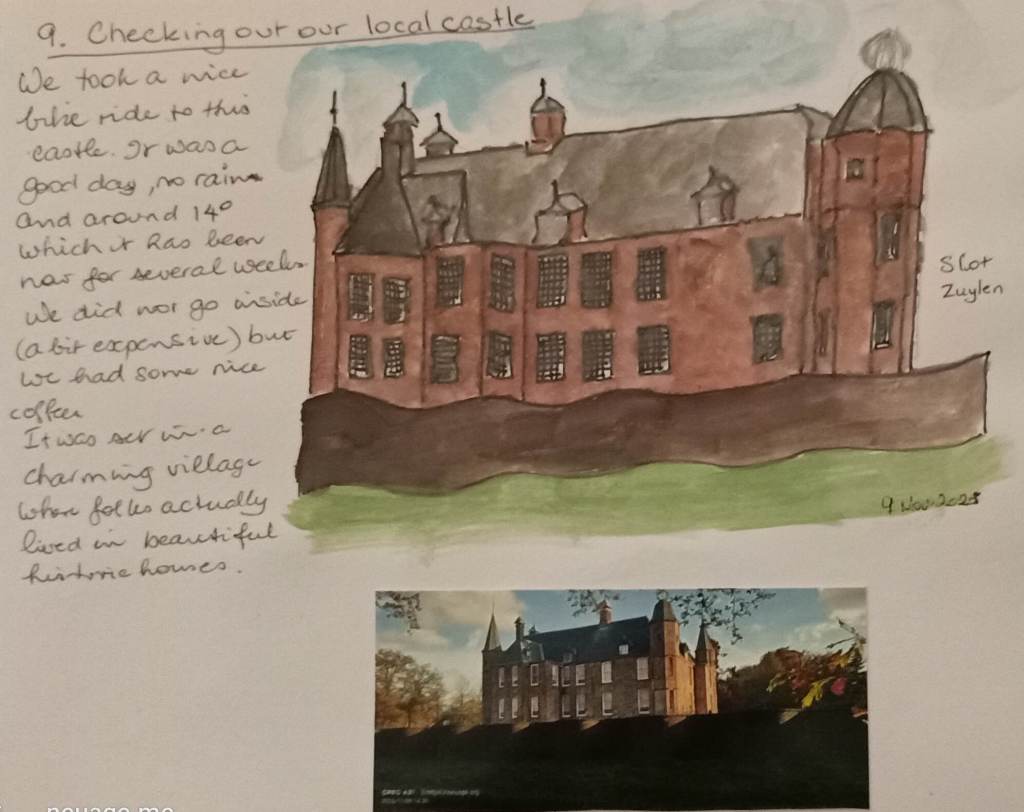 9. Checking out our local castle
We took a nice
bike ride to this
castle. It was a
good day, no rain
and around 14°
which it has been
now for several weeks
We did not go inside
(a bit expensive) but
we had some nice
coffee
It was set in a
charming village
where folks actually
lived in beautiful
historic houses.
Slot
Zuylen
9 Nov. 2025